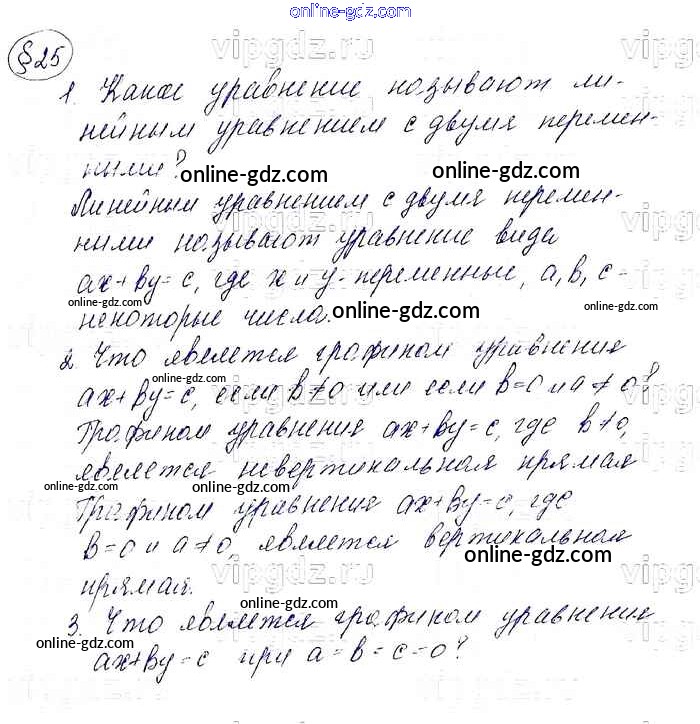 online-gdz.com
§25
1. Какое уравнение называют ли-
нейным уравнением с двумя перемен-
ными?
online-gdz.com online-gdz.com
Линейным уравнением с двумя перемен-
ными называют уравнение вида
ax+by=c, где x и y-переменные, a, b, c-
online-gdz.com online-gdz.com
некоторые числа.
online-gdz.com
2. Что является графиком уравнения
online-gdz.com
ax+by=c, если b≠0 или если b=0 и a≠0?
online-gdz.com
Графиком уравнения ax+by=c, где b≠0,
является невертикальная прямая
online-gdz.com online-gdz.com
Графиком уравнения ax+by=c, где
b=0 и a≠0, является вертикальная
online-gdz.com
прямая.
online-gdz.com
3. Что является графиком уравнения
online-gdz.com
ax+by=c при a=b=c=0?